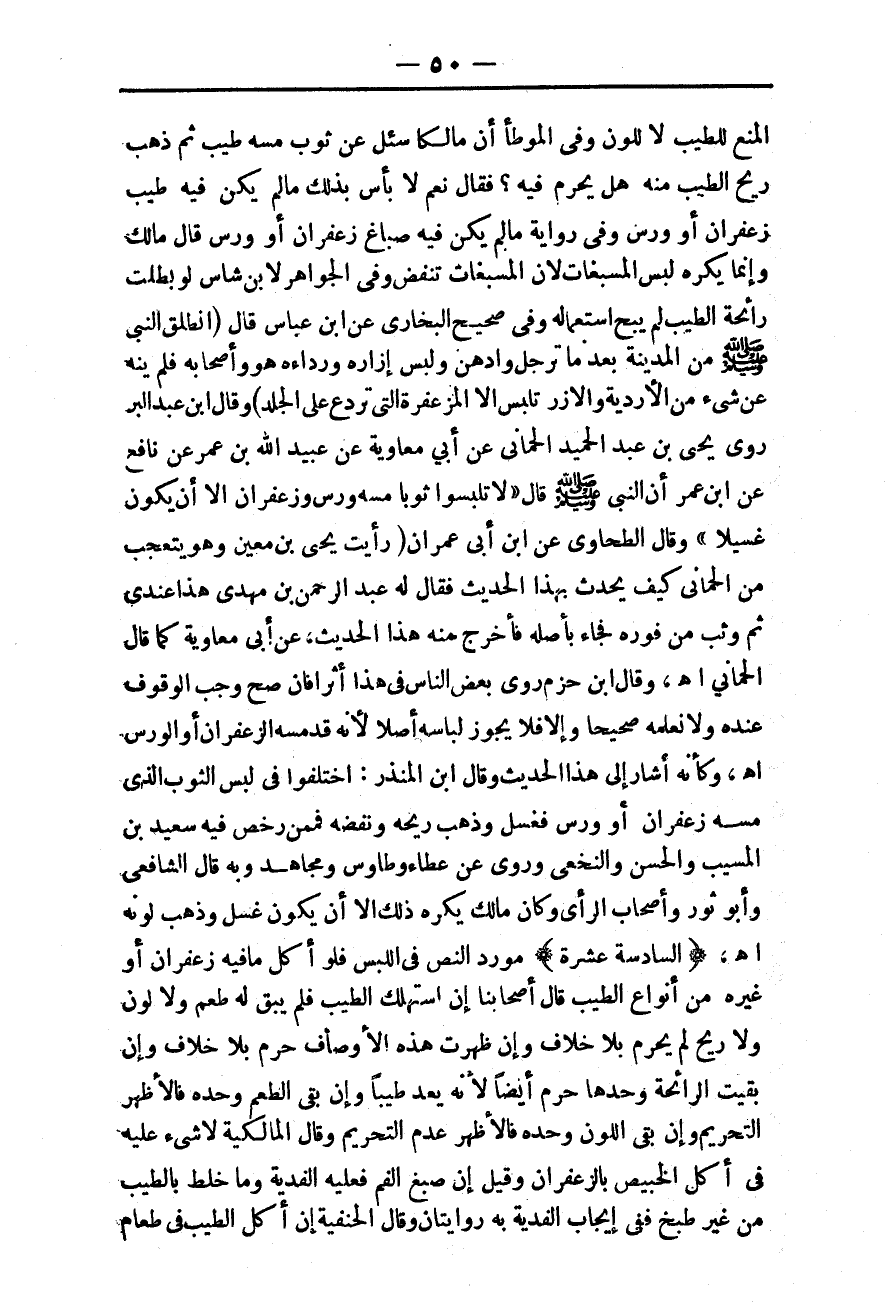 — ٥٠ —
المنع للطيب لا للون وفى الموطأ أن مالكا سئل عن ثوب مسه طيب ثم ذهب
ريح الطيب منه هل يحرم فيه ؟ فقال نعم لا بأس بذلك مالم يكن فيه طيب
زعفران أو ورس وفى رواية مالم يكن فيه صباغ زعفران أو ورس قال مالك
وإنما يكره لبس المسبغات لان المسبغات تنفض وفى الجواهر لابن شاس لو بطلت
رائحة الطيب لم يبح استعماله وفى صحيح البخارى عن ابن عباس قال (انطلق النبى
ﷺ من المدينة بعد ما ترجل وادهن ولبس إزاره ورداءه هو وأصحابه فلم ينه
عن شىء من الأردية والازر تلبس الا المزعفرة التى تردع على الجلد) وقال ابن عبدالبر
روى يحيى بن عبد الحميد الحمانى عن أبي معاوية عن عبيد الله بن عمر عن نافع
عن ابن عمر أن النبى ﷺ قال «لا تلبسوا ثوبا مسه ورس وزعفران الا أن يكون
غسيلا » وقال الطحاوى عن ابن أبى عمران( رأيت يحيى بن معين وهو يتعجب
من الحمانى كيف يحدث بهذا الحديث فقال له عبد الرحمن بن مهدى هذا عندي
ثم وثب من فوره فجاء بأصله فأخرج منه هذا الحديث، عن أبى معاوية كما قال
الحماني ا ه ، وقال ابن حزم روى بعض الناس فى هذا أثرا فان صح وجب الوقوف
عنده ولا نعلمه صحيحا وإلا فلا يجوز لباسه أصلا لأنه قد مسه الزعفران أو الورس
اه ، وكأنه أشار إلى هذا الحديث وقال ابن المنذر : اختلفوا فى لبس الثوب الذى
مسه زعفران أو ورس فغسل وذهب ريحه ونفضه فممن رخص فيه سعيد بن
المسيب والحسن والنخعى وروى عن عطاء وطاوس ومجاهد وبه قال الشافعى
وأبو ثور وأصحاب الرأى وكان مالك يكره ذلك الا أن يكون غسل وذهب لونه
ا ه ، ﴿ السادسة عشرة ﴾ مورد النص فى اللبس فلو أكل مافيه زعفران أو
غيره من أنواع الطيب قال أصحابنا إن استهلك الطيب فلم يبق له طعم ولا لون
ولا ريح لم يحرم بلا خلاف وإن ظهرت هذه الأوصاف حرم بلا خلاف وإن
بقيت الرائحة وحدها حرم أيضاً لأنه يعد طيباً وإن بقى الطعم وحده فالأظهر
التحريم وإن بقى اللون وحده فالأظهر عدم التحريم وقال المالكية لا شىء عليه
فى أكل الخبيص بالزعفران وقيل إن صبغ الفم فعليه الفدية وما خلط بالطيب
من غير طبخ ففى إيجاب الفدية به روايتان وقال الحنفية إن أكل الطيب فى طعام